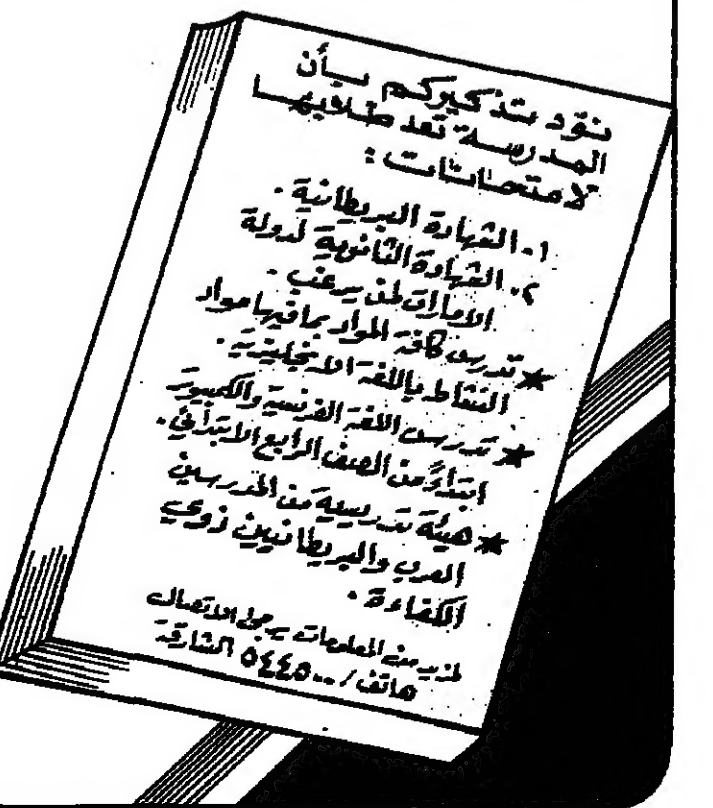 نود بتذكيركم بأن
المدرسة تعد طلابها
لامتحانات :
١- الشهادة البريطانية .
٢- الشهادة الثانوية لدولة
الامارات لمن يرغب .
* تدرس كافة المواد بما فيها مواد
النشاط باللغة الانجليزية .
* تدرس اللغة الفرنسية والكمبيوتر
ابتداءً من الصف الرابع الابتدائي .
* هيئة تدريسية من المدرسين
العرب والبريطانيين ذوي
الكفاءة .
لمزيد من المعلومات يرجى الاتصال
هاتف / ٥٤٤٥٠٠ الشارقة